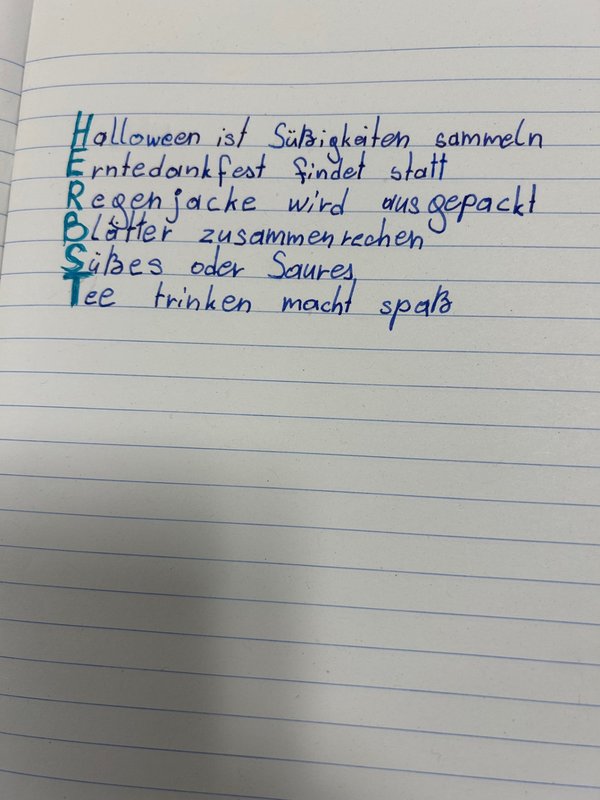 Halloween ist Süßigkeiten sammeln
Erntedankfest findet statt
Regenjacke wird ausgepackt
Blätter zusammenrechen
Süßes oder Saures
Tee trinken macht spaß